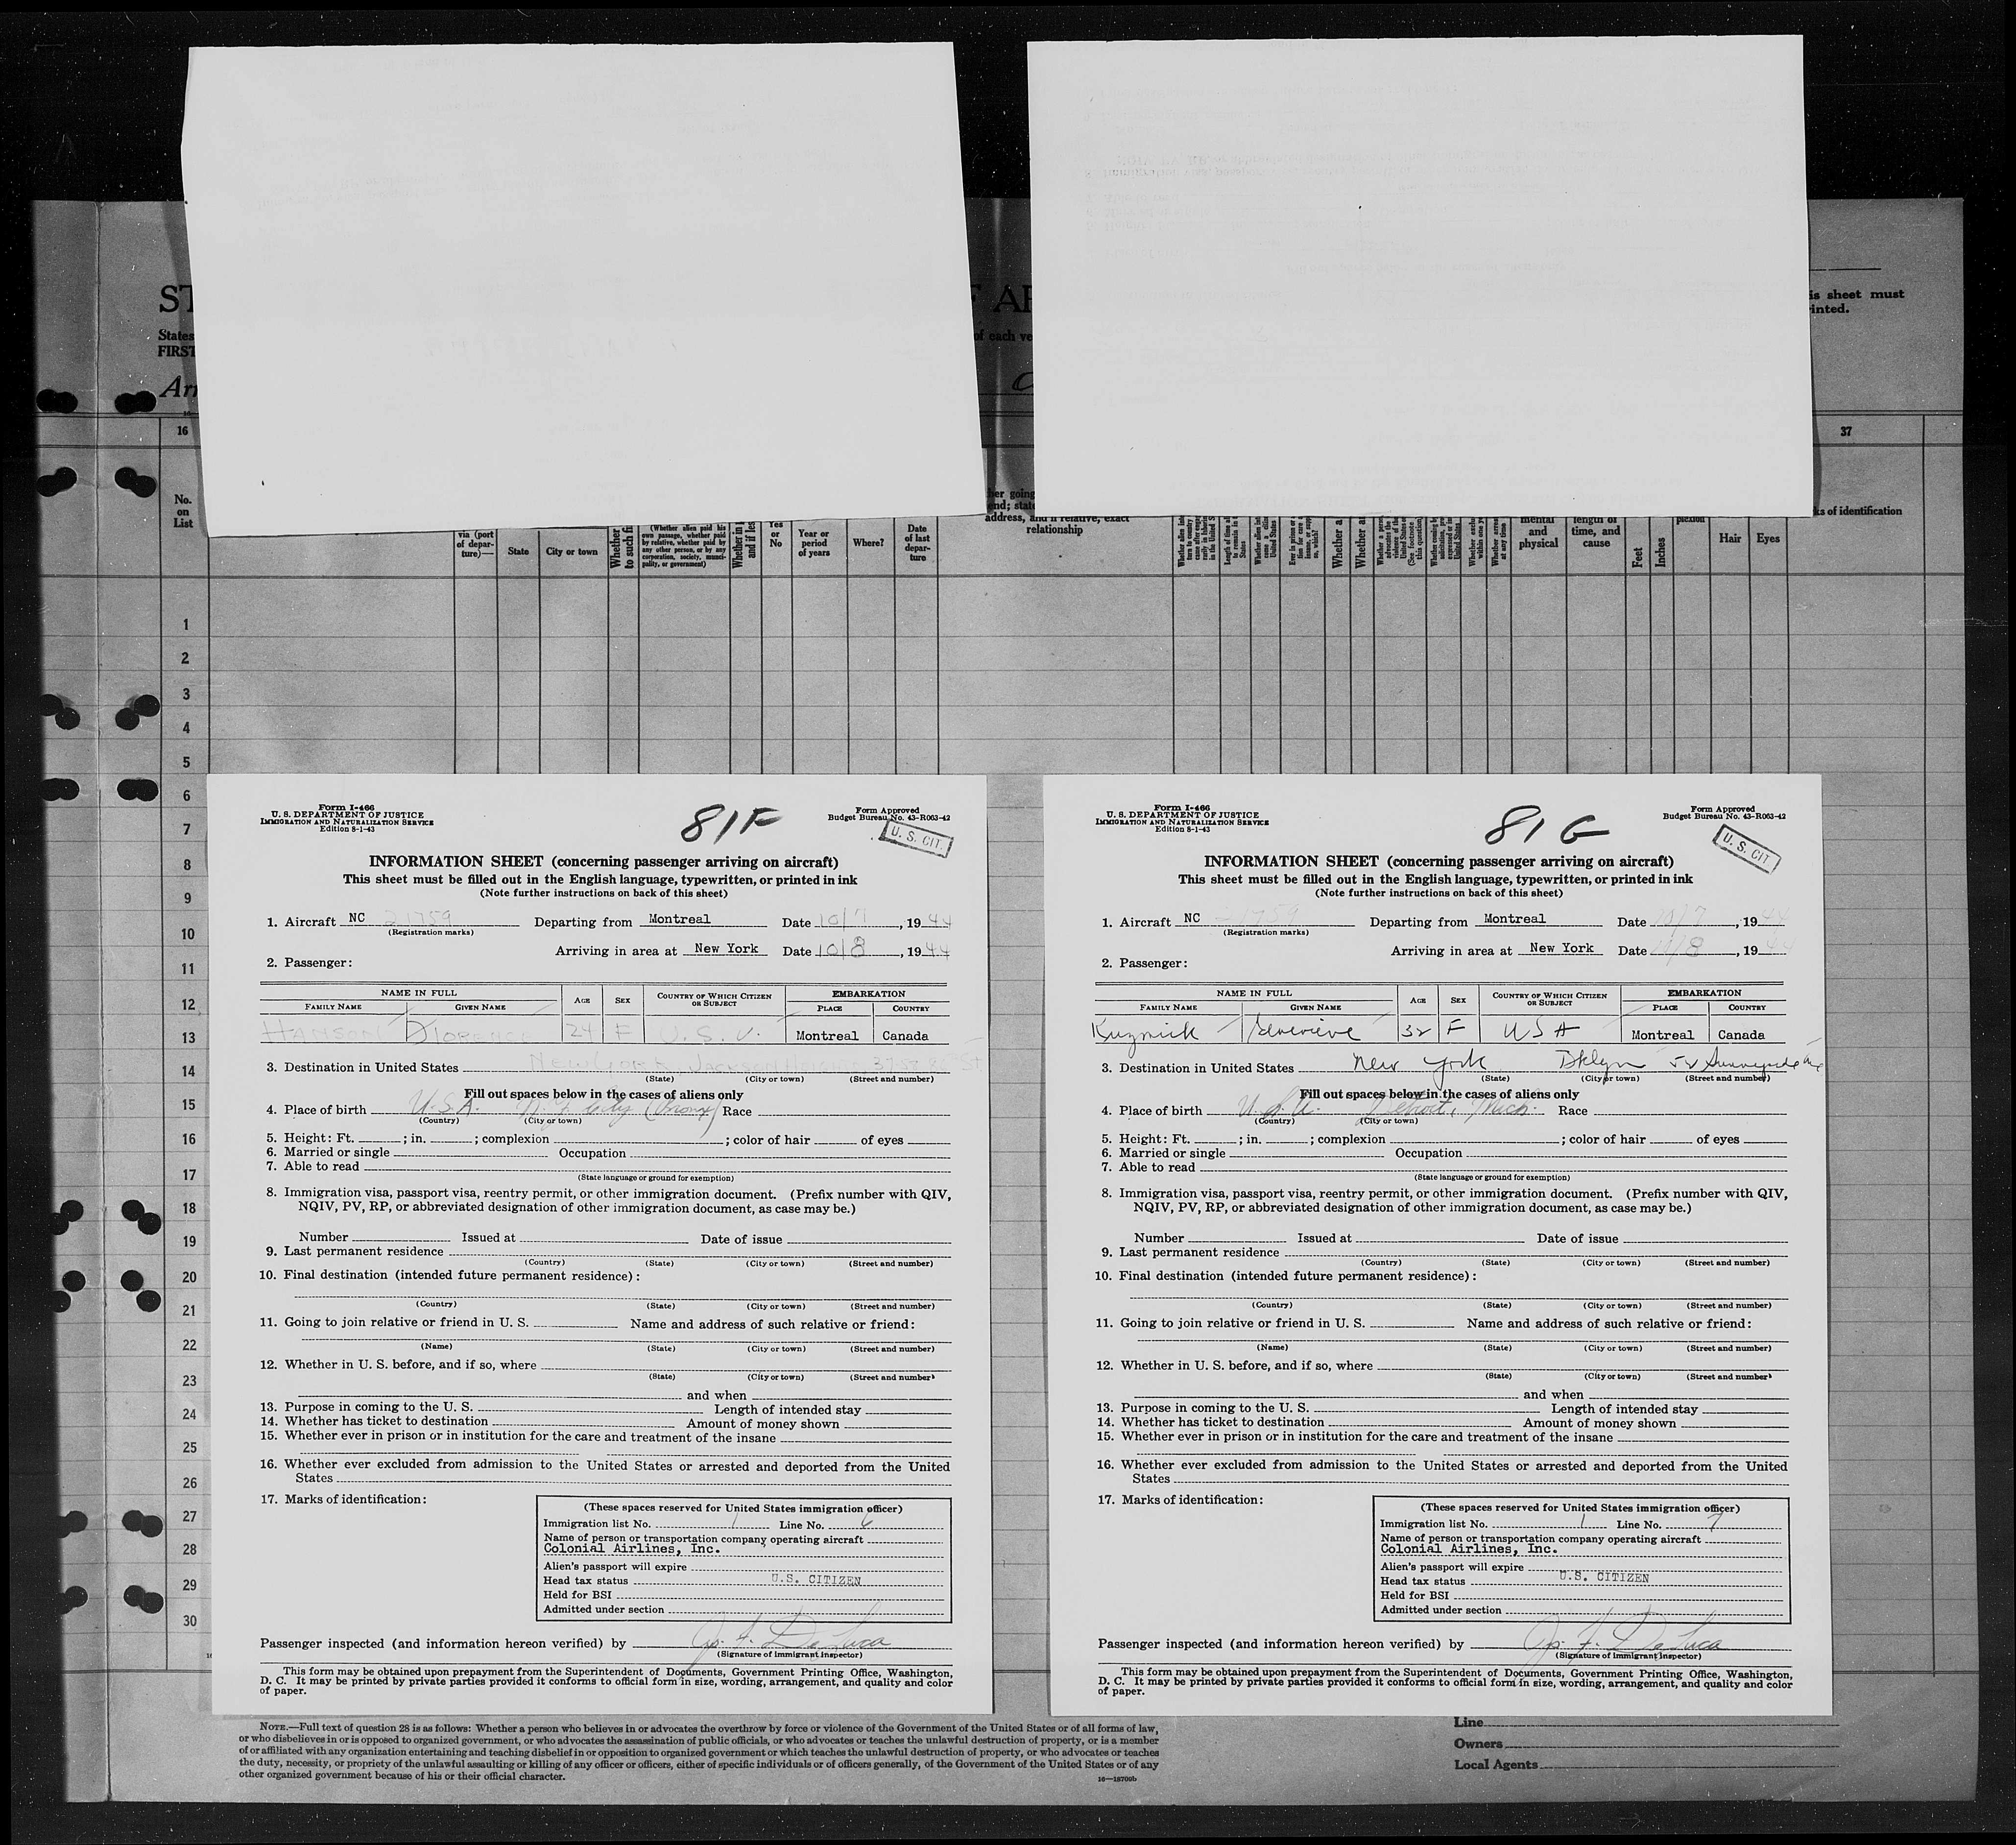 ST
States
FIRST
Arr
of each ve
is sheet must
inted.
16
37
No.
on
List
via (port
of depar-
ture)—
State
City or town
Whether
to such fi
(Whether alien paid his
own passage, whether paid
by relative, whether paid by
any other person, or by any
corporation, society, munici-
pality, or government)
Whether in
and if les
Yes
or
No
Year or
period
of years
Where?
Date
of last
depar-
ture
her going
end; state
address, and if relative, exact
relationship
Whether a
Whether a
mental
and
physical
length of
time, and
cause
Feet
Inches
Hair
Eyes
ks of identification
1
2
3
4
5
6
7
8
9
10
11
12
13
14
15
16
17
18
19
20
21
22
23
24
25
26
27
28
29
30
Form I-466
U. S. DEPARTMENT OF JUSTICE
IMMIGRATION AND NATURALIZATION SERVICE
Edition 8-1-43
81F
Form Approved
Budget Bureau No. 43-R063-42
U. S. CIT.
INFORMATION SHEET (concerning passenger arriving on aircraft)
This sheet must be filled out in the English language, typewritten, or printed in ink
(Note further instructions on back of this sheet)
1. Aircraft NC 21759 Departing from Montreal Date 10/7, 1944
(Registration marks)
Arriving in area at New York Date 10/8, 1944
2. Passenger:
NAME IN FULL
FAMILY NAME GIVEN NAME AGE SEX COUNTRY OF WHICH CITIZEN OR SUBJECT EMBARKATION PLACE COUNTRY
HANSON Florence 24 F U.S. Montreal Canada
3. Destination in United States New York Jackson
(State) (City or town) (Street and number)
Fill out spaces below in the cases of aliens only
4. Place of birth U.S.A. N.Y. City (Bronx) Race
(Country) (City or town)
5. Height: Ft. ; in. ; complexion ; color of hair of eyes
6. Married or single Occupation
7. Able to read
(State language or ground for exemption)
8. Immigration visa, passport visa, reentry permit, or other immigration document. (Prefix number with QIV,
NQIV, PV, RP, or abbreviated designation of other immigration document, as case may be.)
Number Issued at Date of issue
9. Last permanent residence
(Country) (State) (City or town) (Street and number)
10. Final destination (intended future permanent residence):
(Country) (State) (City or town) (Street and number)
11. Going to join relative or friend in U. S. Name and address of such relative or friend:
(Name) (State) (City or town) (Street and number)
12. Whether in U. S. before, and if so, where
(State) (City or town) (Street and number)
and when
13. Purpose in coming to the U. S. Length of intended stay
14. Whether has ticket to destination Amount of money shown
15. Whether ever in prison or in institution for the care and treatment of the insane
16. Whether ever excluded from admission to the United States or arrested and deported from the United
States
17. Marks of identification:
(These spaces reserved for United States immigration officer)
Immigration list No. 1 Line No. 6
Name of person or transportation company operating aircraft
Colonial Airlines, Inc.
Alien's passport will expire
Head tax status U.S. CITIZEN
Held for BSI
Admitted under section
Passenger inspected (and information hereon verified) by Jos. F. DeLuca
(Signature of immigrant inspector)
This form may be obtained upon prepayment from the Superintendent of Documents, Government Printing Office, Washington,
D. C. It may be printed by private parties provided it conforms to official form in size, wording, arrangement, and quality and color
of paper.
Form I-466
U. S. DEPARTMENT OF JUSTICE
IMMIGRATION AND NATURALIZATION SERVICE
Edition 8-1-43
81G
Form Approved
Budget Bureau No. 43-R063-42
U. S. CIT.
INFORMATION SHEET (concerning passenger arriving on aircraft)
This sheet must be filled out in the English language, typewritten, or printed in ink
(Note further instructions on back of this sheet)
1. Aircraft NC 21759 Departing from Montreal Date 10/7, 1944
(Registration marks)
Arriving in area at New York Date 10/8, 1944
2. Passenger:
NAME IN FULL
FAMILY NAME GIVEN NAME AGE SEX COUNTRY OF WHICH CITIZEN OR SUBJECT EMBARKATION PLACE COUNTRY
Kuzmick Genevieve 32 F USA Montreal Canada
3. Destination in United States New York Bklyn Sunnyside Ave
(State) (City or town) (Street and number)
Fill out spaces below in the cases of aliens only
4. Place of birth U.S.A. Detroit, Mich. Race
(Country) (City or town)
5. Height: Ft. ; in. ; complexion ; color of hair of eyes
6. Married or single Occupation
7. Able to read
(State language or ground for exemption)
8. Immigration visa, passport visa, reentry permit, or other immigration document. (Prefix number with QIV,
NQIV, PV, RP, or abbreviated designation of other immigration document, as case may be.)
Number Issued at Date of issue
9. Last permanent residence
(Country) (State) (City or town) (Street and number)
10. Final destination (intended future permanent residence):
(Country) (State) (City or town) (Street and number)
11. Going to join relative or friend in U. S. Name and address of such relative or friend:
(Name) (State) (City or town) (Street and number)
12. Whether in U. S. before, and if so, where
(State) (City or town) (Street and number)
and when
13. Purpose in coming to the U. S. Length of intended stay
14. Whether has ticket to destination Amount of money shown
15. Whether ever in prison or in institution for the care and treatment of the insane
16. Whether ever excluded from admission to the United States or arrested and deported from the United
States
17. Marks of identification:
(These spaces reserved for United States immigration officer)
Immigration list No. 1 Line No. 7
Name of person or transportation company operating aircraft
Colonial Airlines, Inc.
Alien's passport will expire
Head tax status U.S. CITIZEN
Held for BSI
Admitted under section
Passenger inspected (and information hereon verified) by Jos. F. DeLuca
(Signature of immigrant inspector)
This form may be obtained upon prepayment from the Superintendent of Documents, Government Printing Office, Washington,
D. C. It may be printed by private parties provided it conforms to official form in size, wording, arrangement, and quality and color
of paper.
NOTE.—Full text of question 28 is as follows: Whether a person who believes in or advocates the overthrow by force or violence of the Government of the United States or of all forms of law,
or who disbelieves in or is opposed to organized government, or who advocates the assassination of public officials, or who advocates or teaches the unlawful destruction of property, or is a member
of or affiliated with any organization entertaining and teaching disbelief in or opposition to organized government or which teaches the unlawful destruction of property, or who advocates or teaches
the duty, necessity, or propriety of the unlawful assaulting or killing of any officer or officers, either of specific individuals or of officers generally, of the Government of the United States or of any
other organized government because of his or their official character.
16—18700b
Line
Owners
Local Agents